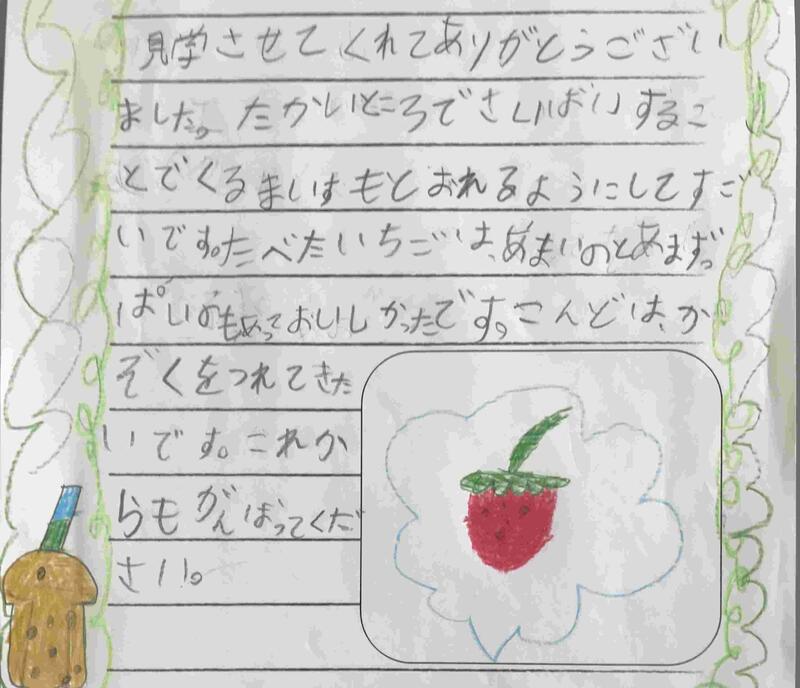 見学させてくれてありがとうござい
ました。たかいところでさいばいするこ
とでくるまいすもとおれるようにしてすご
いです。たべたいちごは、あまいのとあまずっ
ぱいのもあっておいしかったです。こんどは、か
ぞくをつれてきた
いです。これか
らもがんばってくだ
さい。